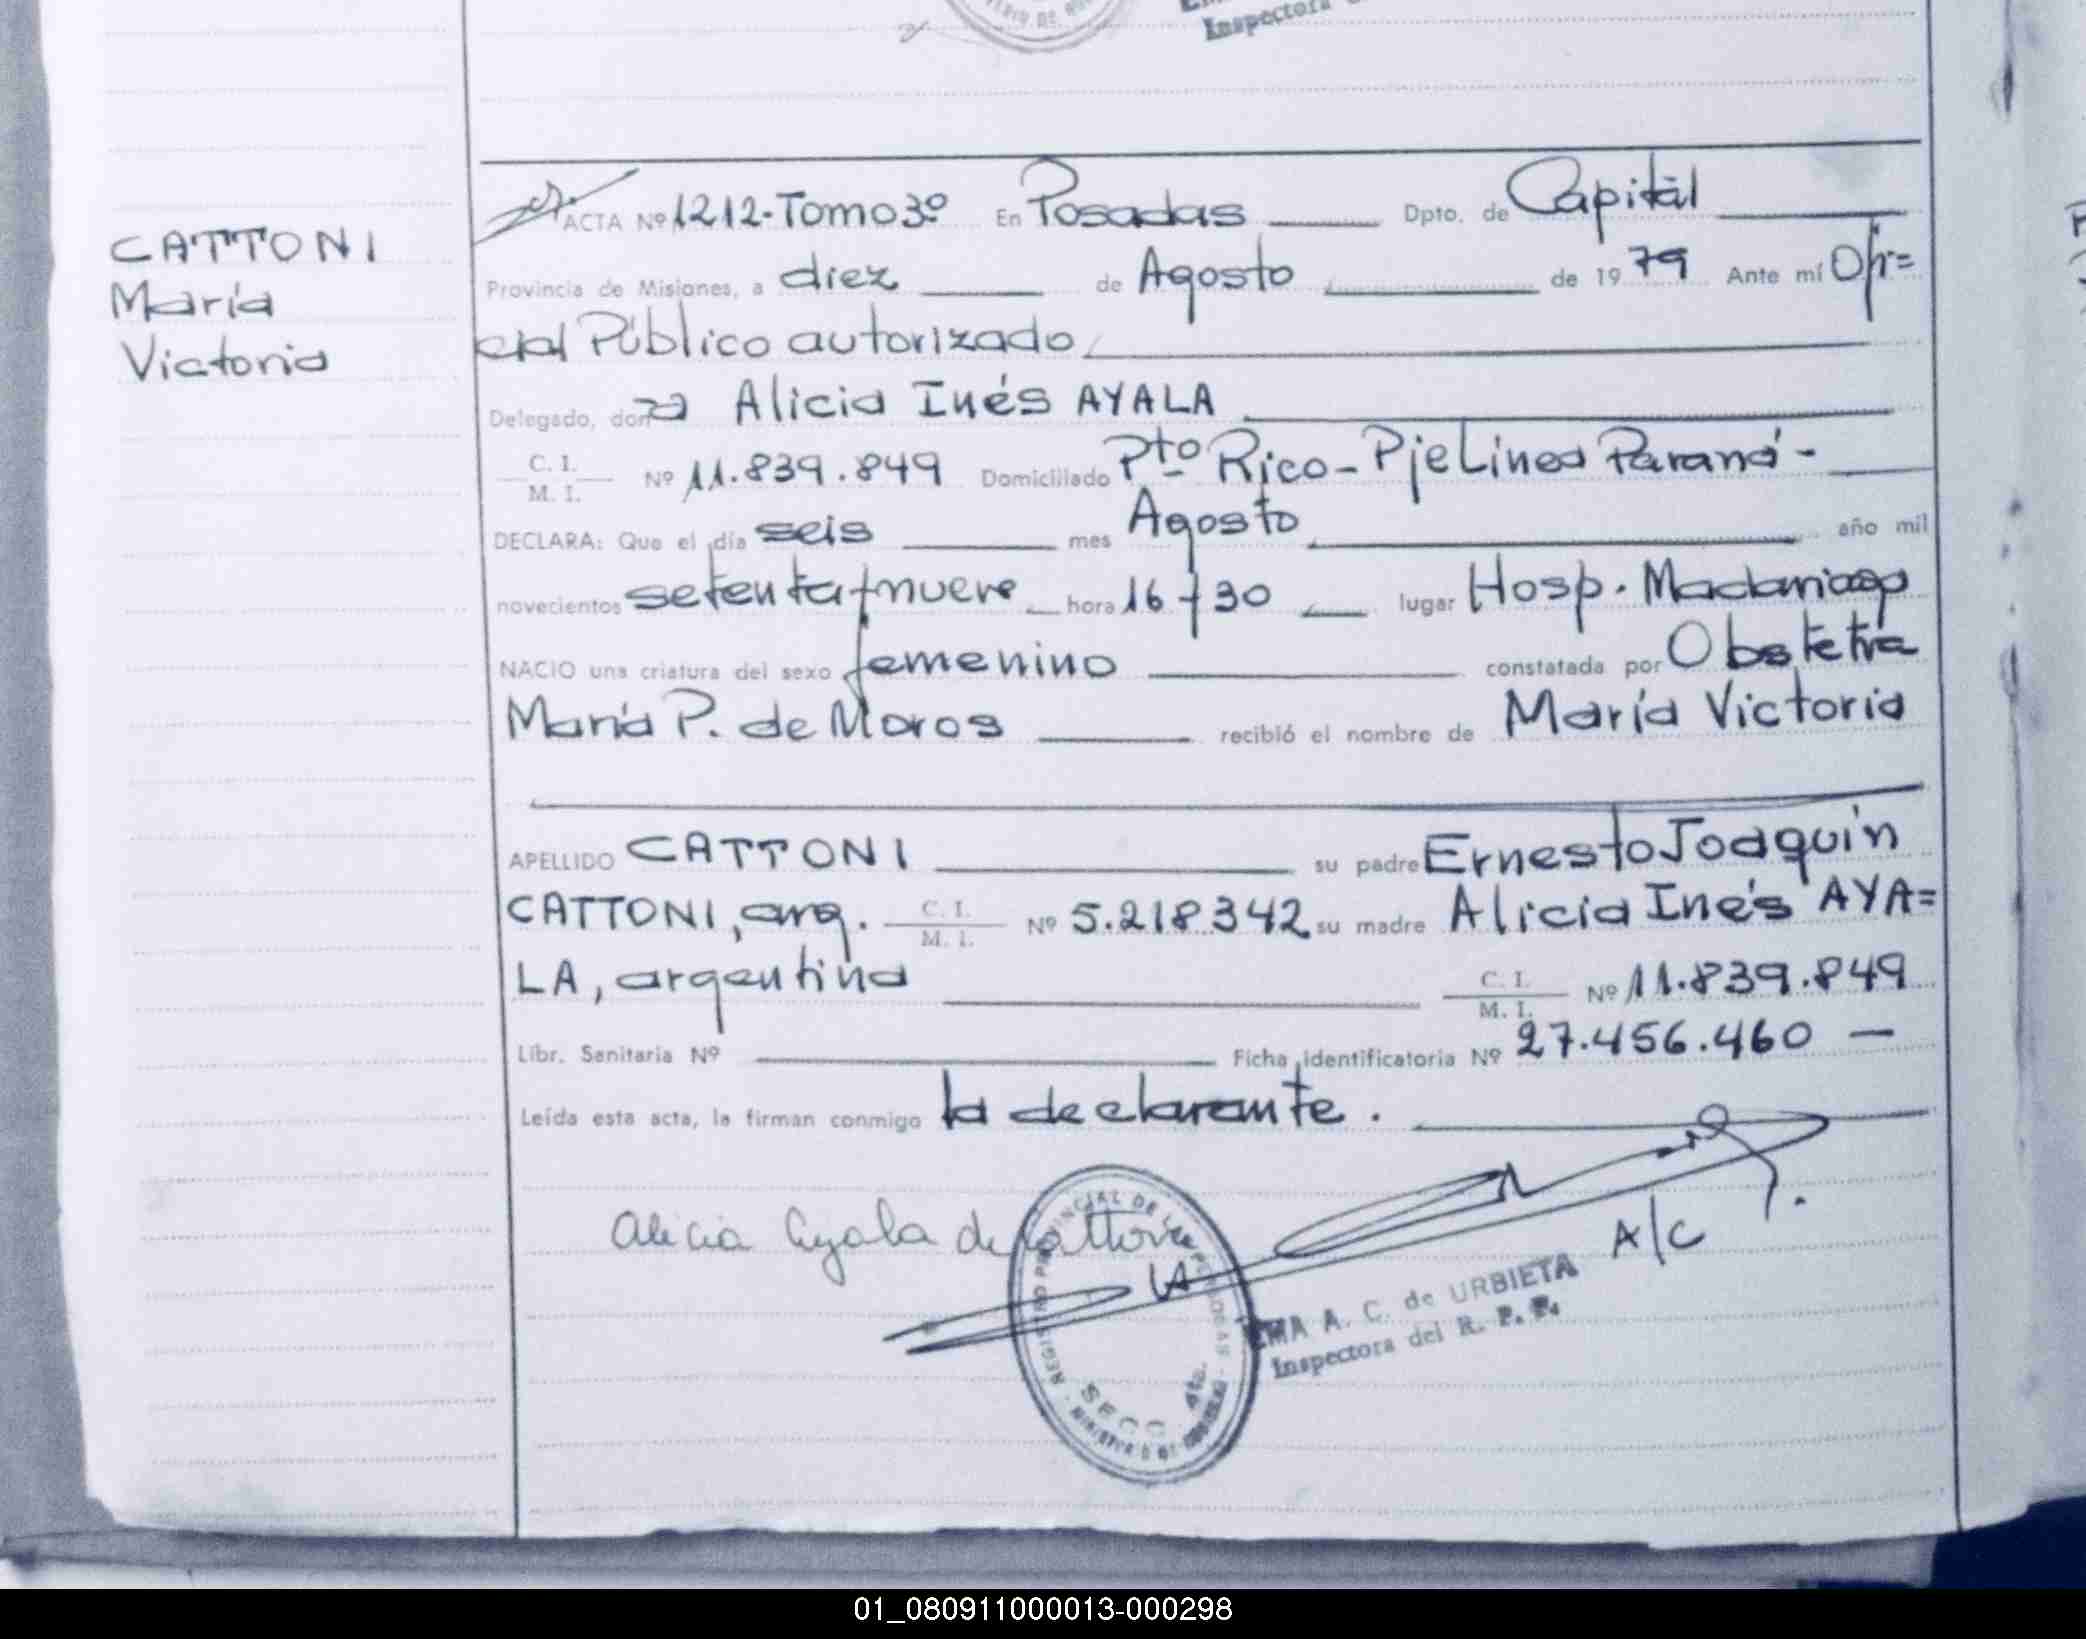 Inspectora
CATTONI
María
Victoria
ACTA Nº 1212-Tomo 3º En Posadas Dpto. de Capital
Provincia de Misiones, a diez de Agosto de 1979 Ante mí Ofi=
cial Público autorizado
Delegado, don ña Alicia Inés AYALA
C. I.
M. I. Nº 11.839.849 Domiciliado Pto Rico - Pje Linea Paraná -
DECLARA: Que el día seis mes Agosto año mil
novecientos setenta y nueve hora 16 y 30 lugar Hosp. Madariaga
NACIO una criatura del sexo femenino constatada por Obstetra
María P. de Moros recibió el nombre de María Victoria
APELLIDO CATTONI su padre Ernesto Joaquín
CATTONI, arg. C. I. M. I. Nº 5.218.342 su madre Alicia Inés AYA=
LA, argentina C. I. M. I. Nº 11.839.849
Libr. Sanitaria Nº Ficha identificatoria Nº 27.456.460 —
Leída esta acta, la firman conmigo la declarante.
Alicia Ayala de Cattoni
A/C
REGISTRO PROVINCIAL DE LAS PERSONAS - MINISTERIO DE
SECC. 4ta.
A. C. de URBIETA
Inspectora del R. P. P.
01_080911000013-000298